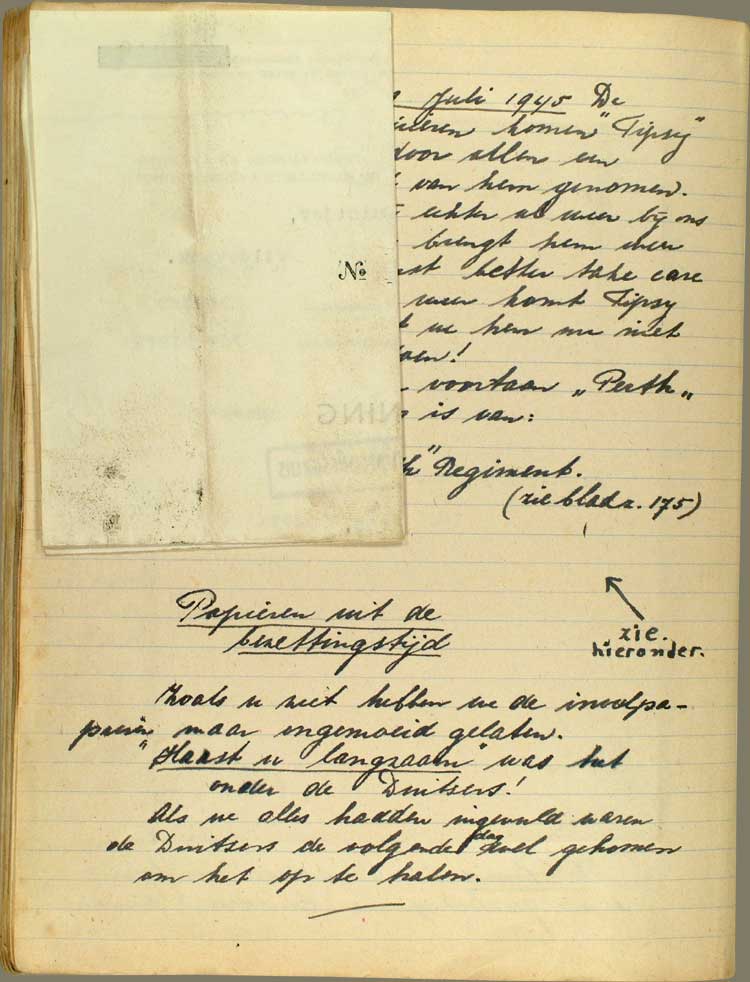 Juli 1945 De
komen "Tipsy"
door allen een
van hem genomen.
echter al weer bij ons
brengt hem weer
better take care
weer komt Tipsy
we hem nu niet
voortaan „Perth„
is van:
" Regiment.
(zie bladz. 175)
No
NING
zie.
hieronder.
Papieren uit de
bezettingstijd
Zoals u ziet hebben we de invulpa-
pieren maar ongemoeid gelaten.
"Haast u langzaam" was het
onder de Duitsers!
Als we alles hadden ingevuld waren
de Duitsers de volgende dag wel gekomen
om het op te halen.